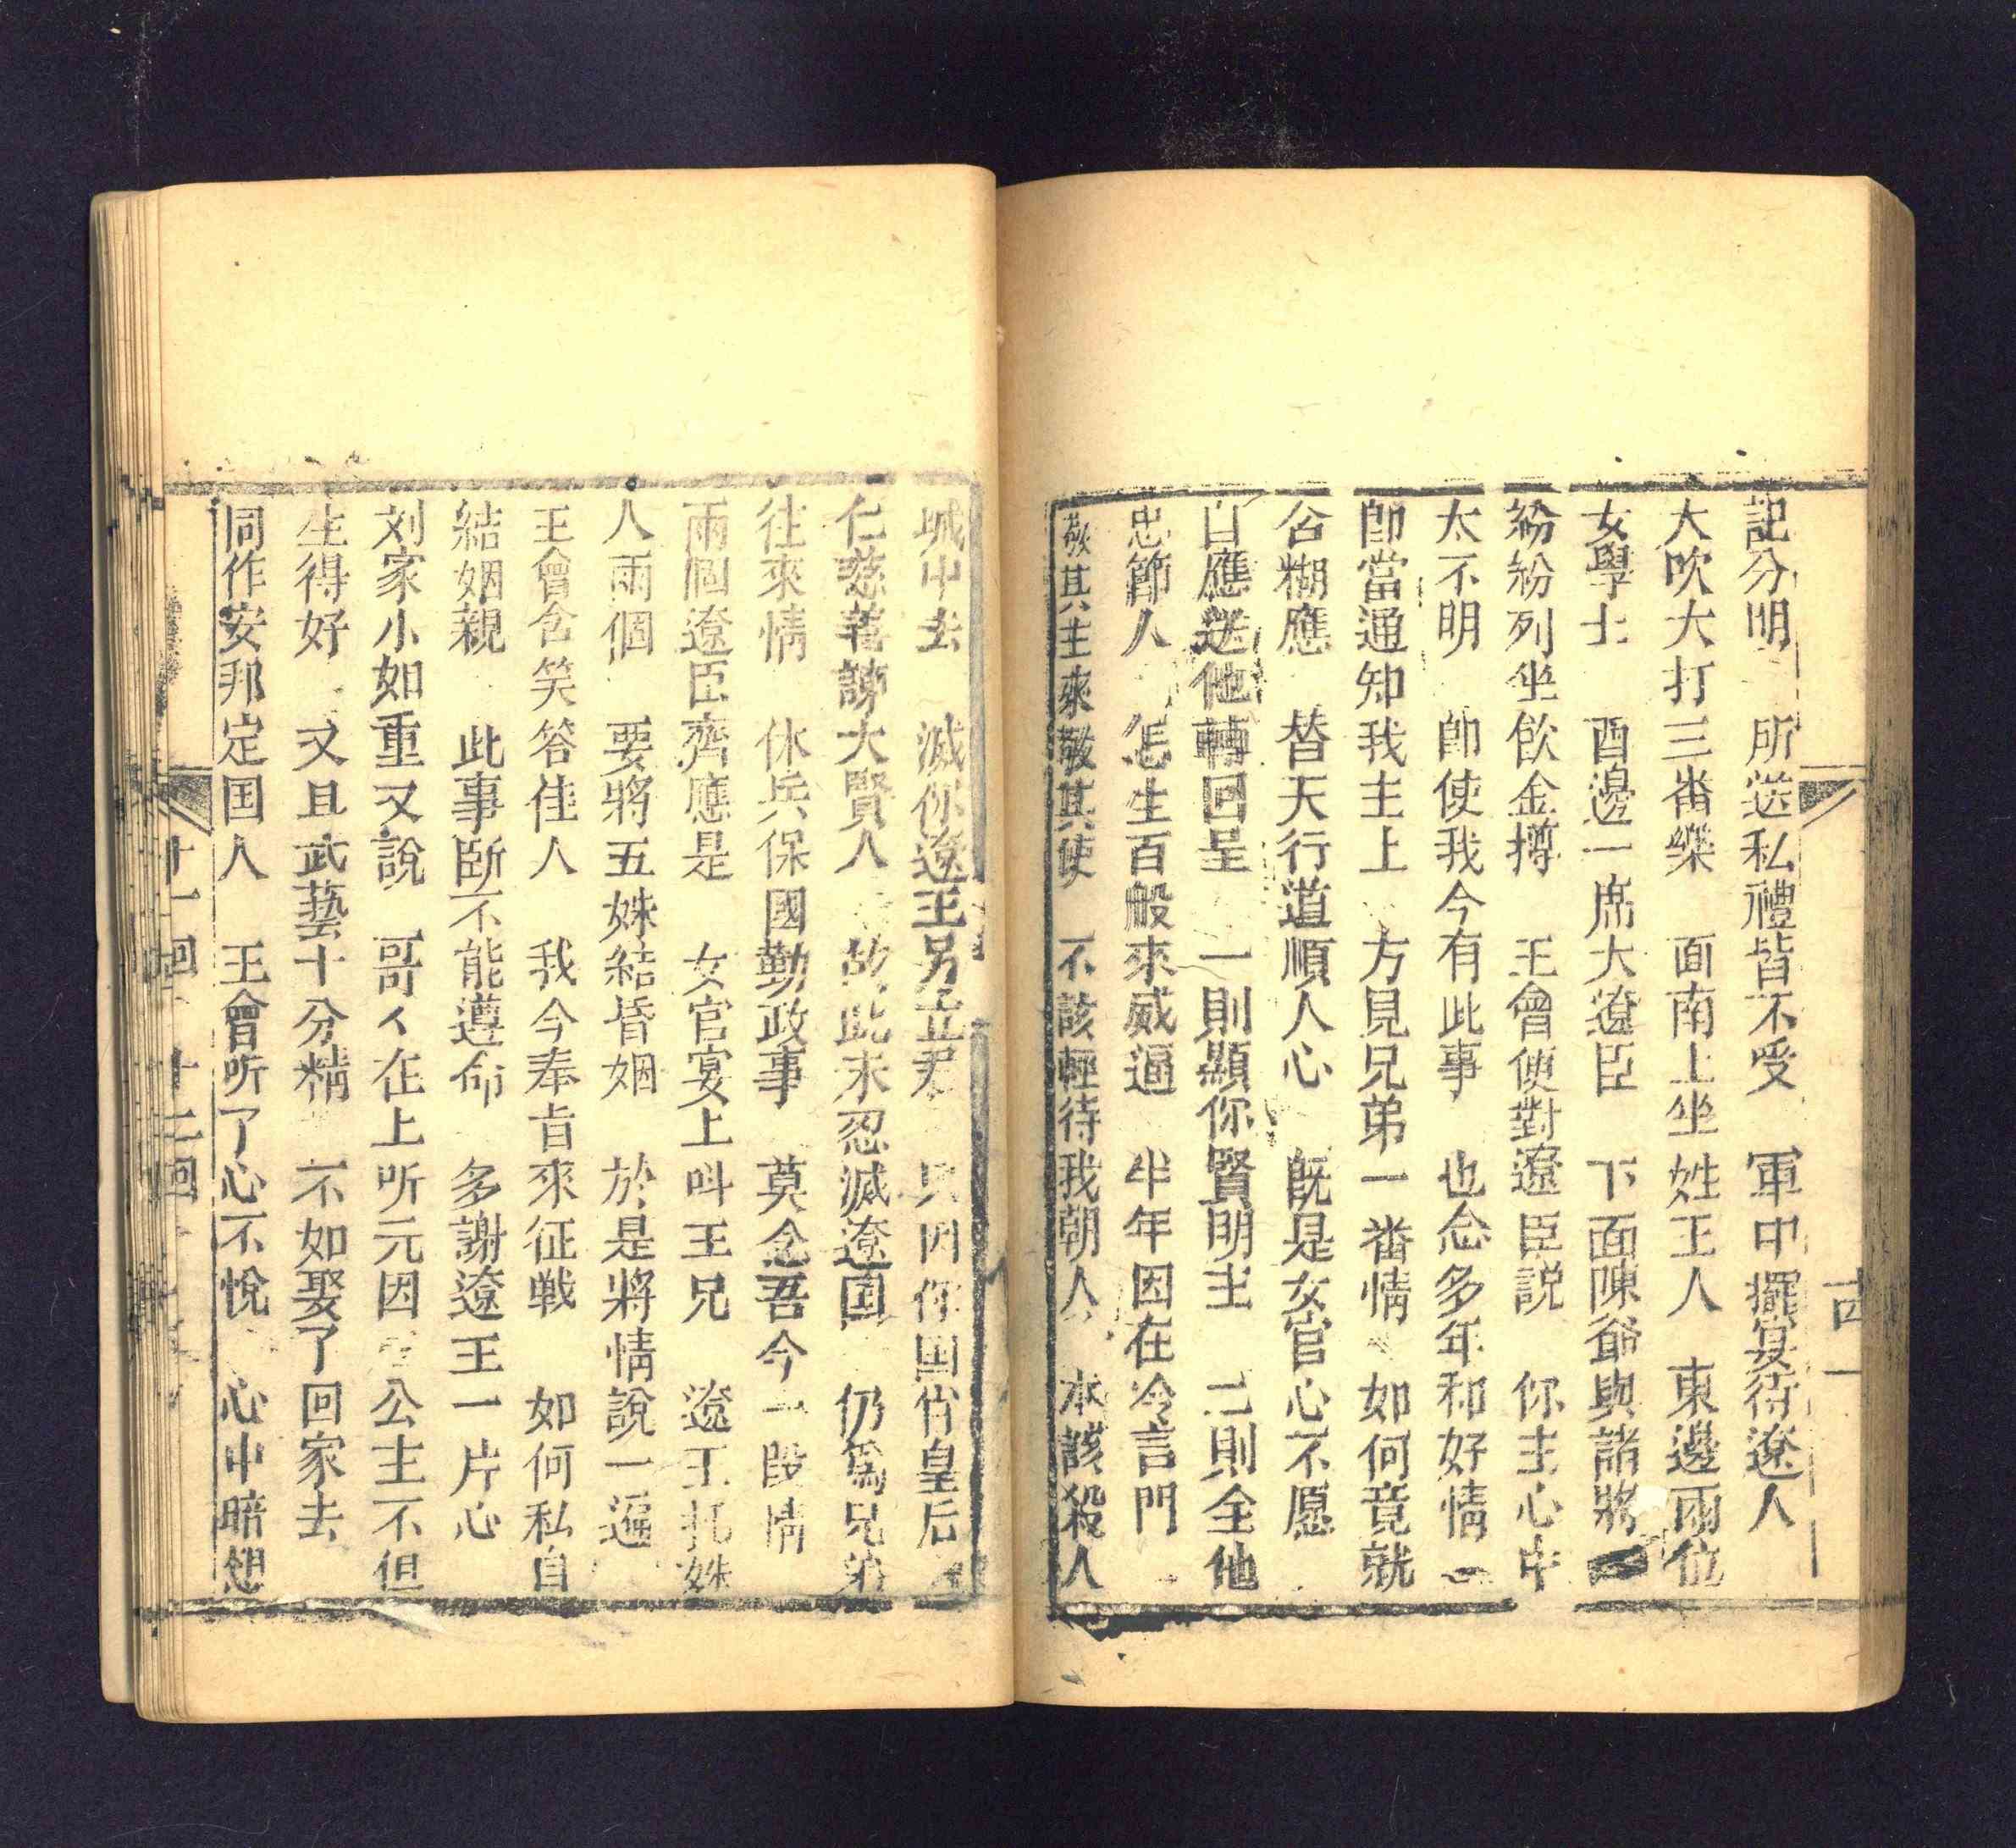 記分明 所送私禮皆不受 軍中擺宴待遼人
大吹大打三畨樂 面南上坐姓王人 東邊兩位
女學士 酉邊一席大遼臣 下面陳爺與諸將
紛紛紛列坐飲金撙 王會便對遼臣説 你主心中
太不明 卽使我今有此事 也念多年和好情
卽當通知我主上 方見兄弟一畨情 如何竟就
含糊應 替天行道順人心 既是女官心不愿
自應送他轉回呈 一則顯你賢明主 二則全他
忠節人 怎生百般來威逼 半年因在冷言門
敬其主來敬其使 不該輕待我朝人 本該殺人
城中去 滅你遼王另立君 只因你国肖皇后
仁慈菩諦大賢人 故此未忍滅遼国 仍爲兄弟
往來情 休兵保國勤政事 莫念吾今一段情
兩個遼臣齊應是 女官宴上叫王兄 遼王托妹
人兩個 要將五妹結昏姻 於是將情說一遍
王會含笑答佳人 我今奉旨來征戦 如何私自
結姻親 此事断不能遵命 多謝遼王一片心
刘家小如重又說 哥〻在上听元因 公主不但
生得好 又且武藝十分精 不如娶了回家去
同作安邦定国人 王會听了心不悅 心中暗想
十一回 十二回